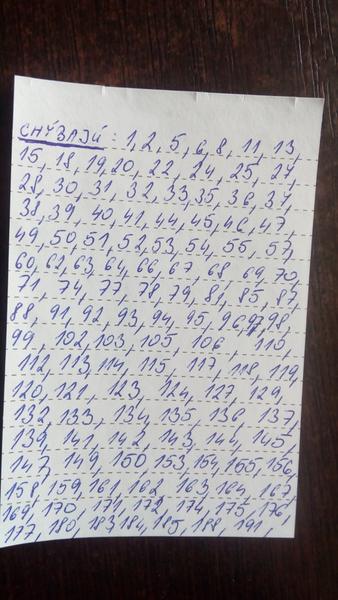 CHÝBAJÚ: 1, 2, 5, 6, 8, 11, 13,
15, 18, 19, 20, 22, 24, 25, 27,
28, 30, 31, 32, 33, 35, 36, 37,
38, 39, 40, 41, 44, 45, 46, 47,
49, 50, 51, 52, 53, 54, 55, 57,
60, 62, 63, 64, 66, 67, 68, 69, 70,
71, 74, 77, 78, 79, 81, 85, 87,
88, 91, 92, 93, 94, 95, 96, 97, 98,
99, 102, 103, 105, 106, 110,
112, 113, 114, 115, 117, 118, 119,
120, 121, 123, 124, 127, 129,
132, 133, 134, 135, 136, 137,
139, 141, 142, 143, 144, 145,
147, 149, 150, 153, 154, 155, 156,
158, 159, 161, 162, 163, 164, 167,
169, 170, 171, 172, 174, 175, 176,
177, 180, 183, 184, 185, 188, 191,